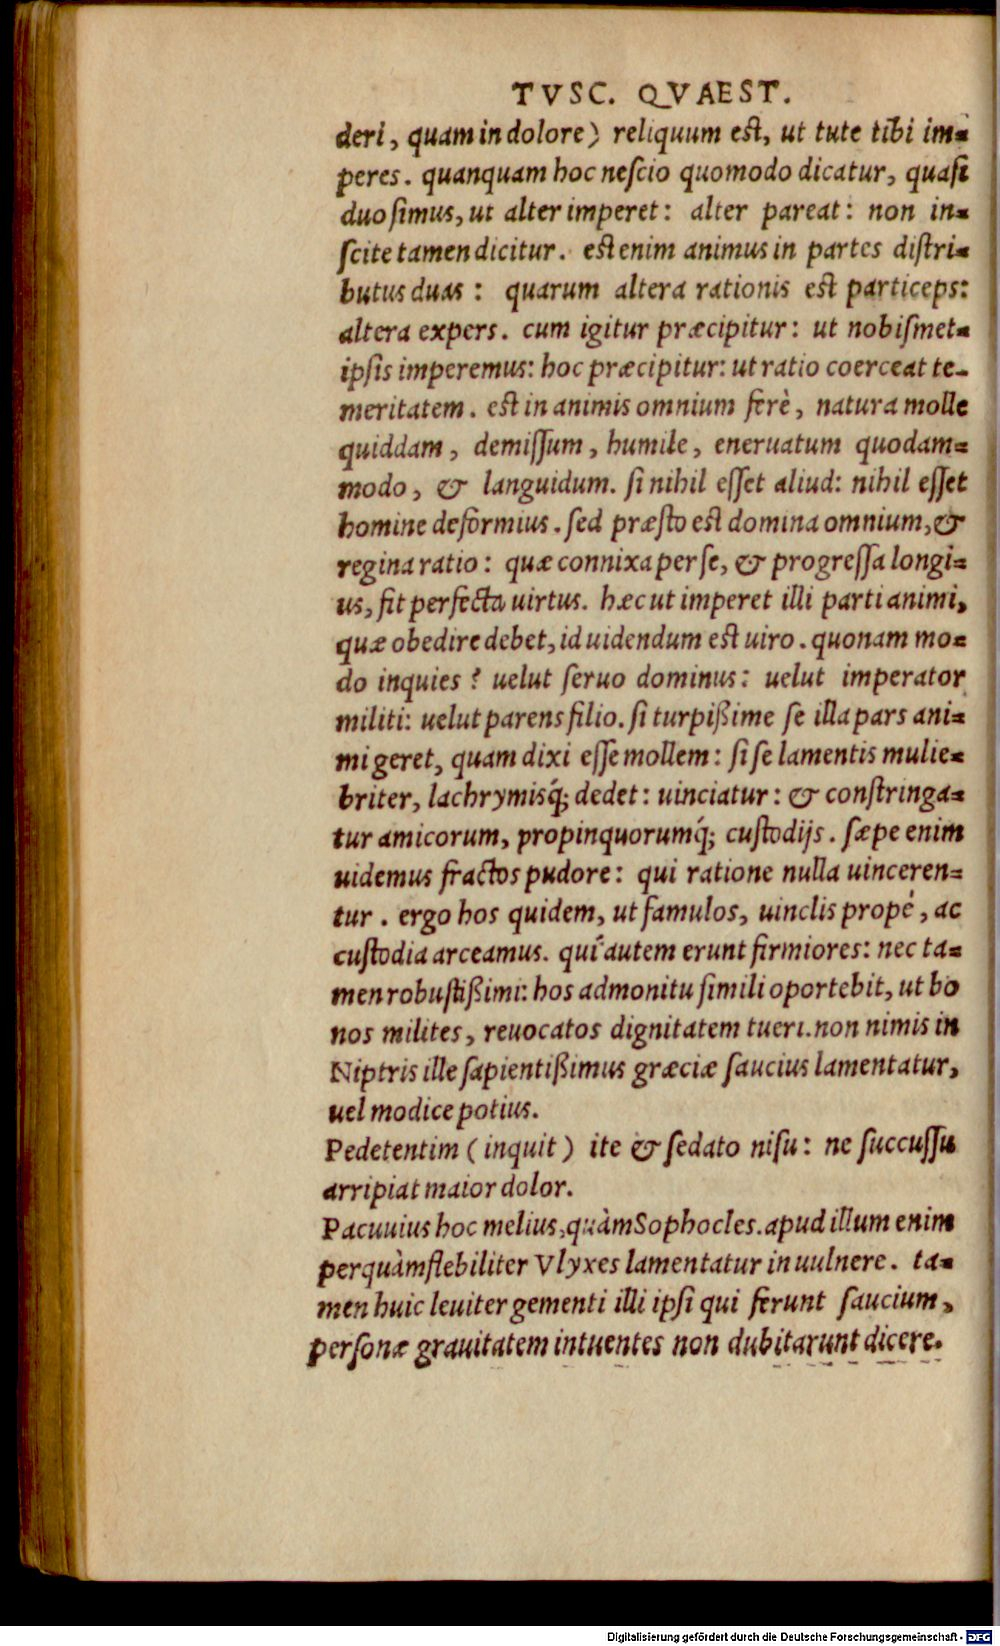 TVSC. QVAEST.
deri, quam in dolore) reliquum est, ut tute tibi im=
peres. quanquam hoc nescio quomodo dicatur, quasi
duo simus, ut alter imperet: alter pareat: non in=
scite tamen dicitur. est enim animus in partes distri=
butus duas: quarum altera rationis est particeps:
altera expers. cum igitur præcipitur: ut nobismet=
ipsis imperemus: hoc præcipitur: ut ratio coerceat te-
meritatem. est in animis omnium ferè, natura molle
quiddam, demissum, humile, eneruatum quodam=
modo, & languidum. si nihil esset aliud: nihil esset
homine deformius. sed præsto est domina omnium, &
regina ratio: quæ connixa per se, & progressa longi=
us, fit perfecta uirtus. hæc ut imperet illi parti animi,
quæ obedire debet, id uidendum est uiro. quonam mo=
do inquies? uelut seruo dominus: uelut imperator
militi: uelut parens filio. si turpißime se illa pars ani=
mi geret, quam dixi esse mollem: si se lamentis mulie=
briter, lachrymisq́; dedet: uinciatur: & constringa=
tur amicorum, propinquorumq́; custodijs. sæpe enim
uidemus fractos pudore: qui ratione nulla uinceren=
tur. ergo hos quidem, ut famulos, uinclis propè, ac
custodia arceamus. qui autem erunt firmiores: nec ta=
men robustißimi: hos admonitu simili oportebit, ut bo
nos milites, reuocatos dignitatem tueri. non nimis in
Niptris ille sapientißimus græciæ saucius lamentatur,
uel modice potius.
Pedetentim (inquit) ite & sedato nisu: ne succussu
arripiat maior dolor.
Pacuuius hoc melius, quàm Sophocles. apud illum enim
perquàm flebiliter Vlyxes lamentatur in uulnere. ta=
men huic leuiter gementi illi ipsi qui ferunt saucium,
personæ grauitatem intuentes non dubitarunt dicere.
Digitalisierung gefördert durch die Deutsche Forschungsgemeinschaft - DFG